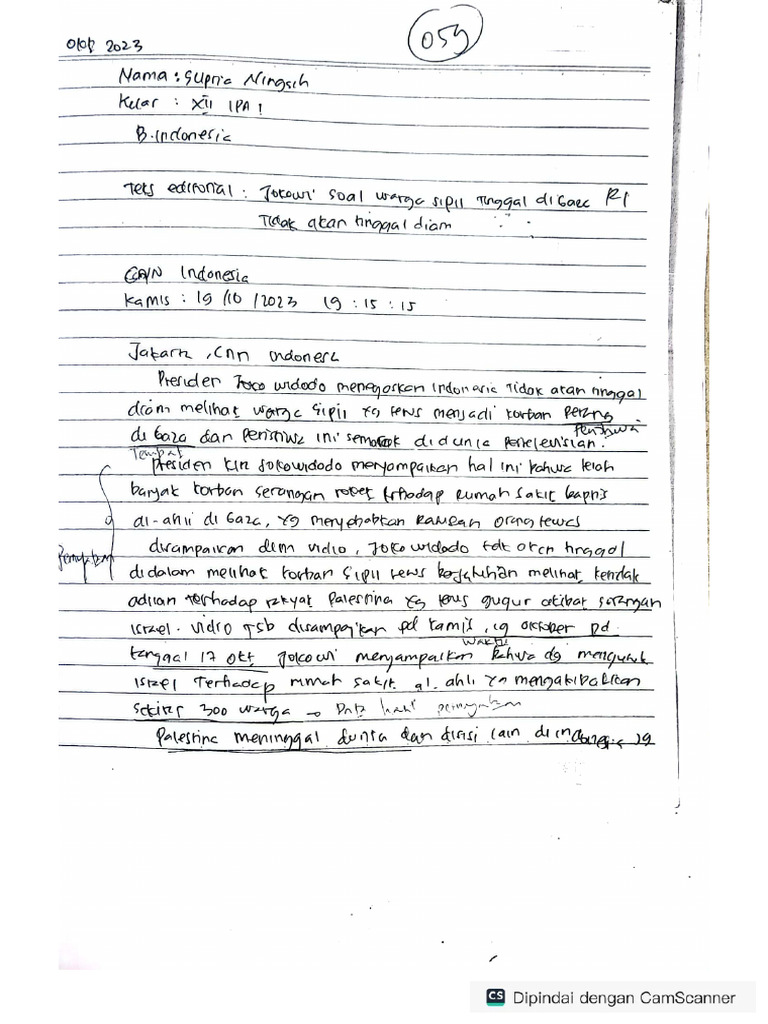 2023
059
Nama : Supria Ningsih
Kelas : XII IPA 1
B. Indonesia
Teks editorial : Jokowi soal warga sipil tinggal di Gaza RI
Tidak akan tinggal diam
CNN Indonesia
Kamis : 19 /10 /2023 19 : 15 : 15
Jakarta , Cnn Indonesi
Presiden Joko widodo menegaskan Indonesia Tidak akan tinggal
diam melihat warga sipil yg terus menjadi korban Perang
Peristiwa
di Gaza dan Peristiwa ini di dunia
Tempat
Presiden Jokowidodo menyampaikan hal ini bahwa telah
banyak korban serangan roket terhadap rumah sakit
di Gaza, yg menyebabkan orang tewas
disampaikan dlm vidio, Joko widodo tdk akan tinggal
didalam melihat korban sipil terus melihat
adilan terhadap rakyat Palestina yg terus gugur akibat serangan
israel. vidio tsb disampaikan pd kamis, 19 oktober pd
waktu
tanggal 17 okt Jokowi menyampaikan bahwa dg mengutuk
israel terhadap rumah sakit al. ahli yg mengakibatkan
300 warga →
Palestina meninggal dunia dan disisi lain di indonesia 19
CS Dipindai dengan CamScanner